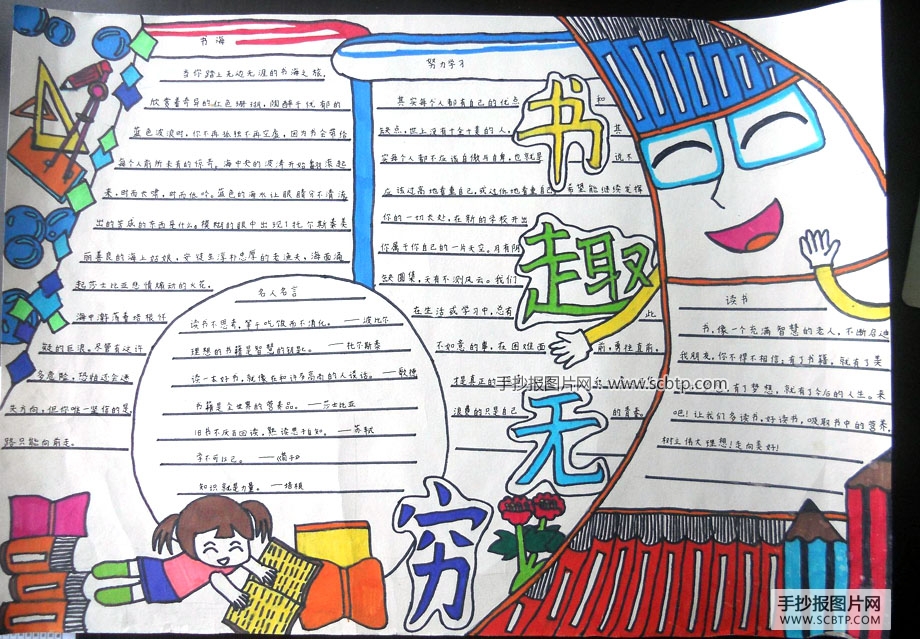 书海
当你踏上无边无涯的书海之旅,
欣赏着奇异的红色珊瑚,陶醉于优郁的
蓝色波浪时,你不再孤独不再空虚,因为书会带给
每个人前所未有的惊奇。海中央的波涛开始翻滚起
来,时而长啸,时而低吟。蓝色的海水让眼睛分不清流
出的苦涩的东西是什么。模糊的眼中出现了托尔斯泰美
丽善良的海上姑娘,安徒生淳朴忠厚的老渔夫,海面涌
起莎士比亚悲情煽动的火花。
海中漩荡着培根怀
疑的巨浪。尽管有这许
多危险,恐怕还会迷
失方向,但你唯一坚信的是
路只能向前走。
名人名言
读书不思考,等于吃饭而不消化。——波比尔
理想的书籍是智慧的钥匙。——托尔斯泰
读一本好书,就像在和许多高尚的人谈话。——歌德
书籍是全世界的营养品。——莎士比亚
旧书不厌百回读,熟读思子自知。——苏轼
学不可以已。——《荀子》
知识就是力量。——培根
努力学习
其实每个人都有自己的优点 和
缺点,世上没有十全十美的人, 其
实每个人都不应该自傲与自卑,也就是 说不
应该过高地看重自己,或过低地看重自己 希望能继续发挥
你的一切长处,在新的学校开出
你属于你自己的一片天空。月有阴
缺圆集,天有不测风云。我们
在生活或学习中,总有 此
不如意的事,在困难面 前,勇往直前,
才是真正的
浪费的只是自己 的青春。
书
趣
无
穷
读书
书,像一个充满智慧的老人,不断召进
我朋友,你不得不相信,有了书籍,就有了美
,有了梦想,就有了今后的人生。来
吧!让我们多读书,好读书,吸取书中的营养,
树立伟大理想!走向美好!
手抄报图片网:www.scbtp.com
手抄报图片网
WWW.SCBTP.COM